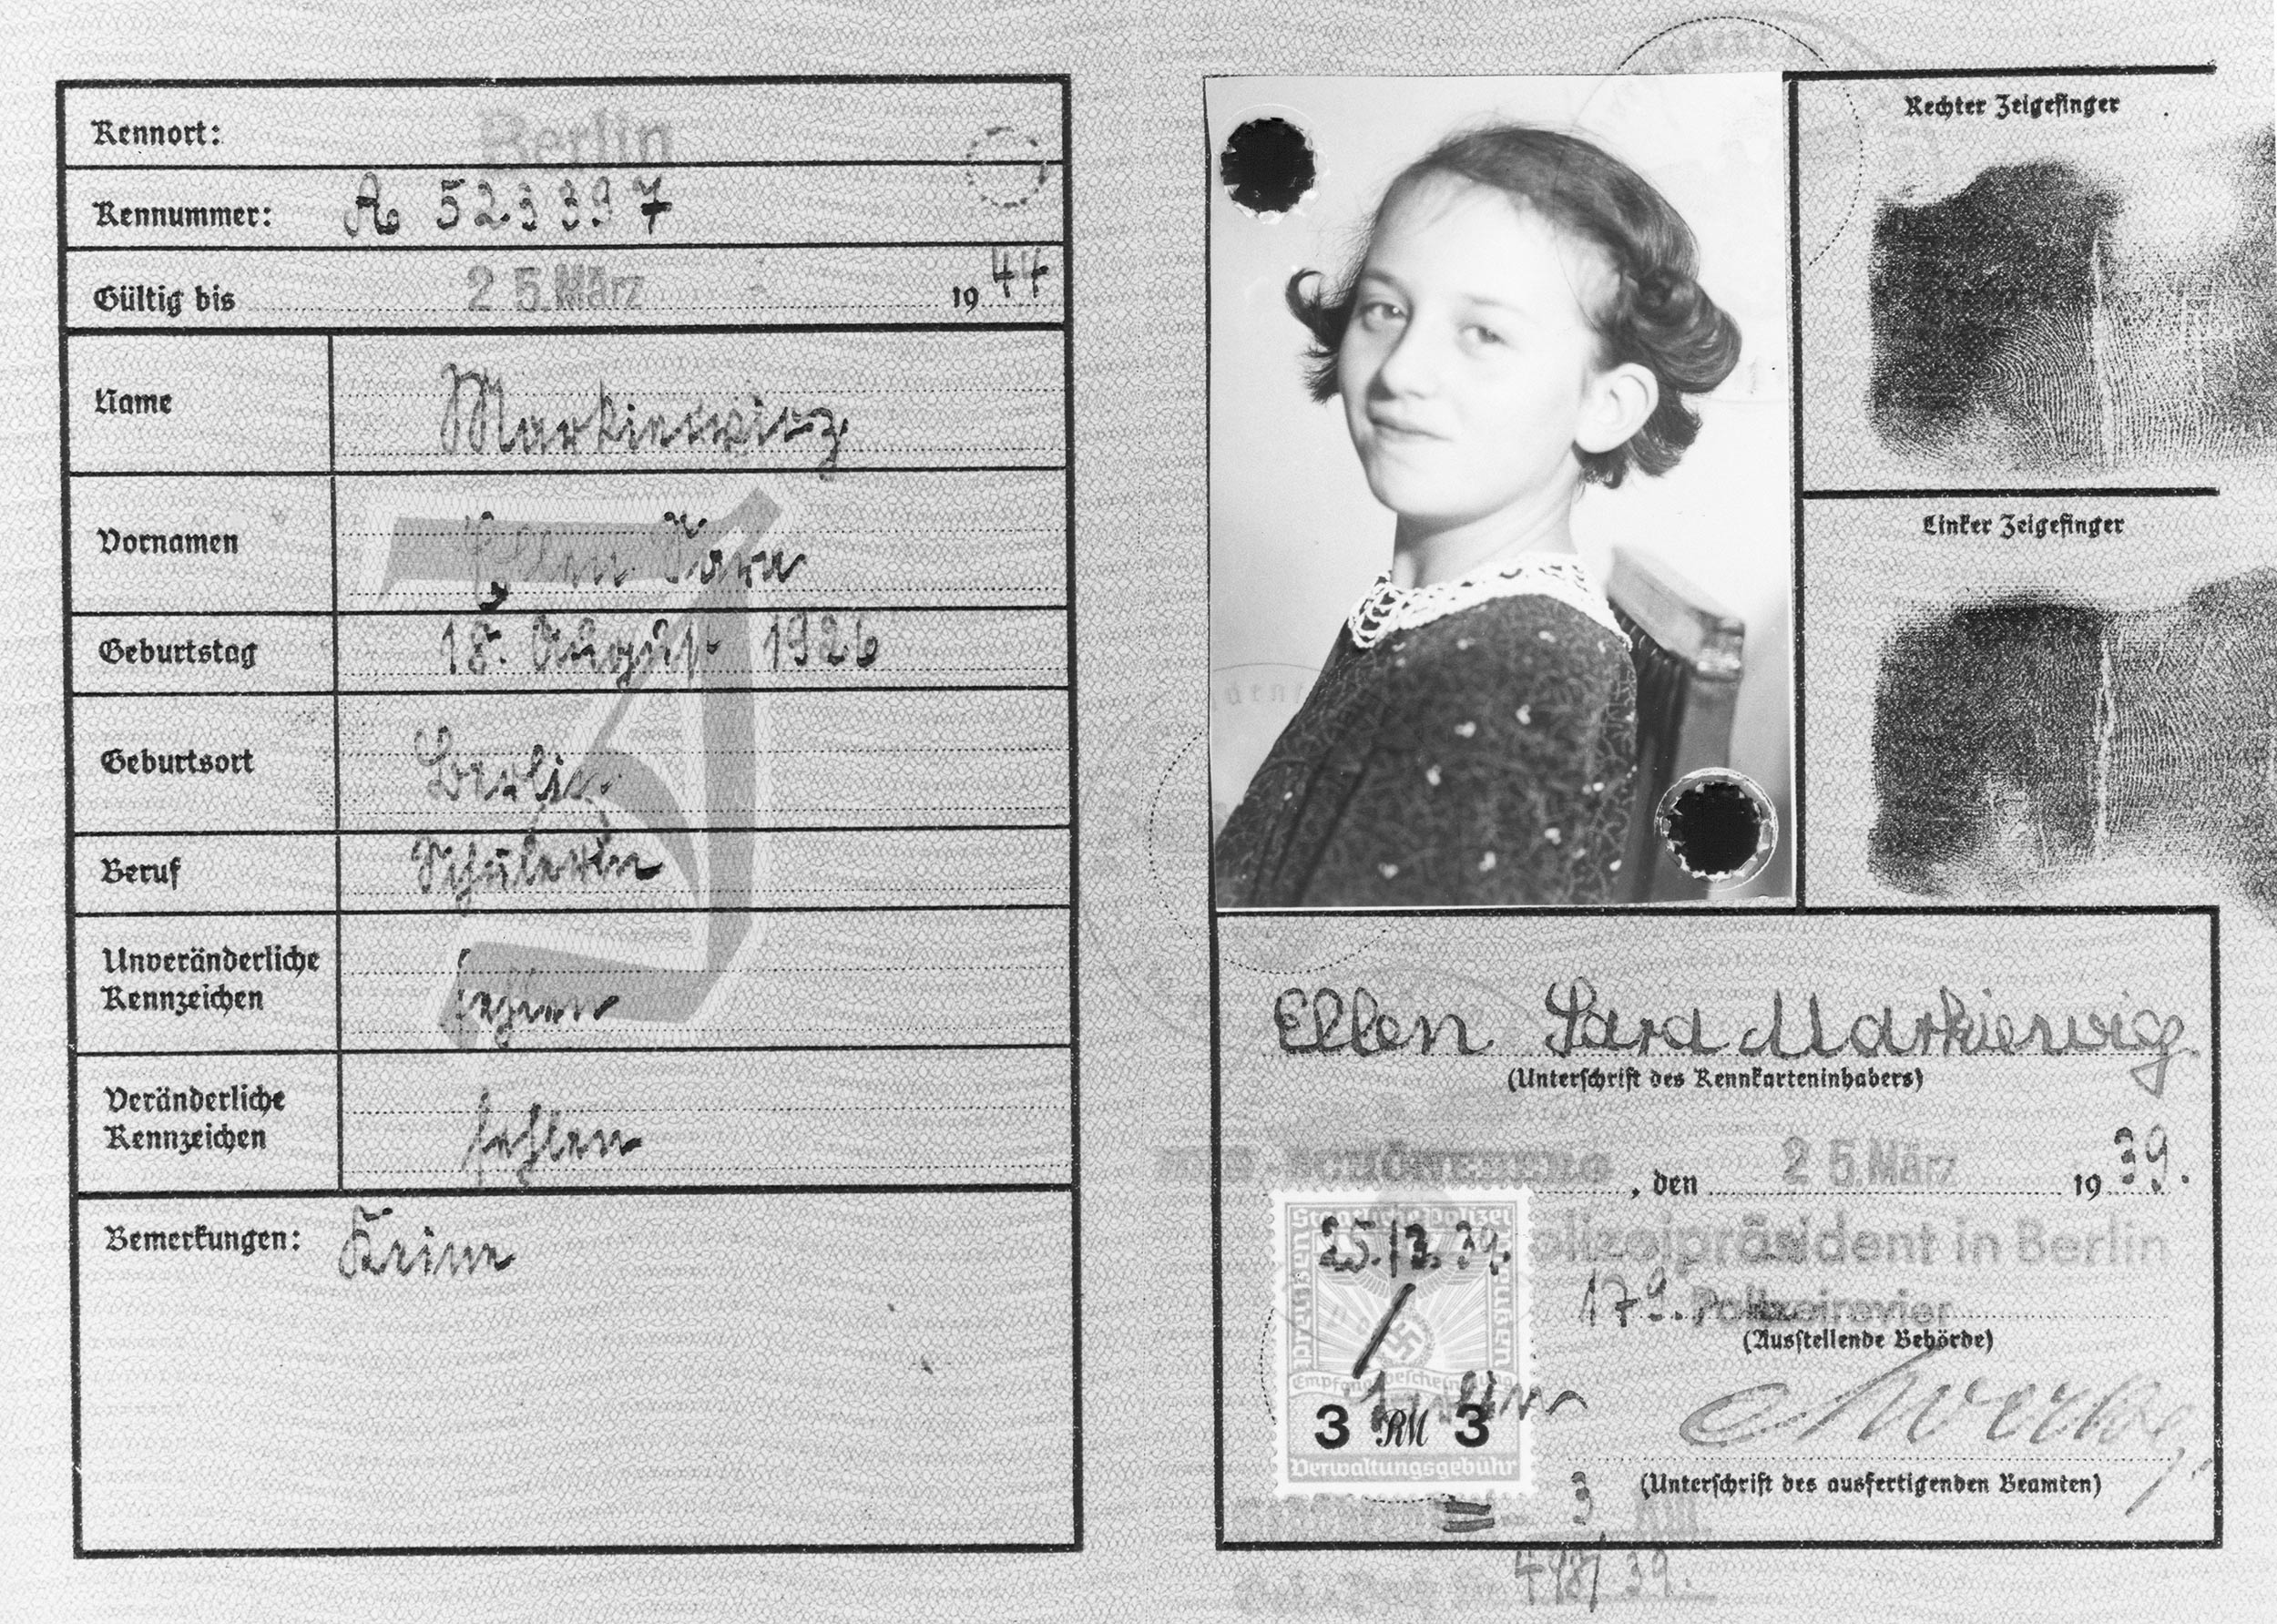 Kennort: Berlin
Kennummer: A 523397
Gültig bis 25. März 1944
Name Markiewicz
Vornamen Ellen Sara
Geburtstag 18. August 1926
Geburtsort Berlin
Beruf Schülerin
Unveränderliche Kennzeichen fehlen
Veränderliche Kennzeichen fehlen
Bemerkungen: Keine
Rechter Zeigefinger
Linker Zeigefinger
Ellen Sara Markiewicz
(Unterschrift des Kennkarteninhabers)
SCHÖNEBERG, den 25. März 1939.
Polizeipräsident in Berlin
179. Polizeirevier
(Ausstellende Behörde)
(Unterschrift des ausfertigenden Beamten)
Staatliche Polizei
Preussen
25./3. 39.
3 RM 3
Verwaltungsgebühr
3